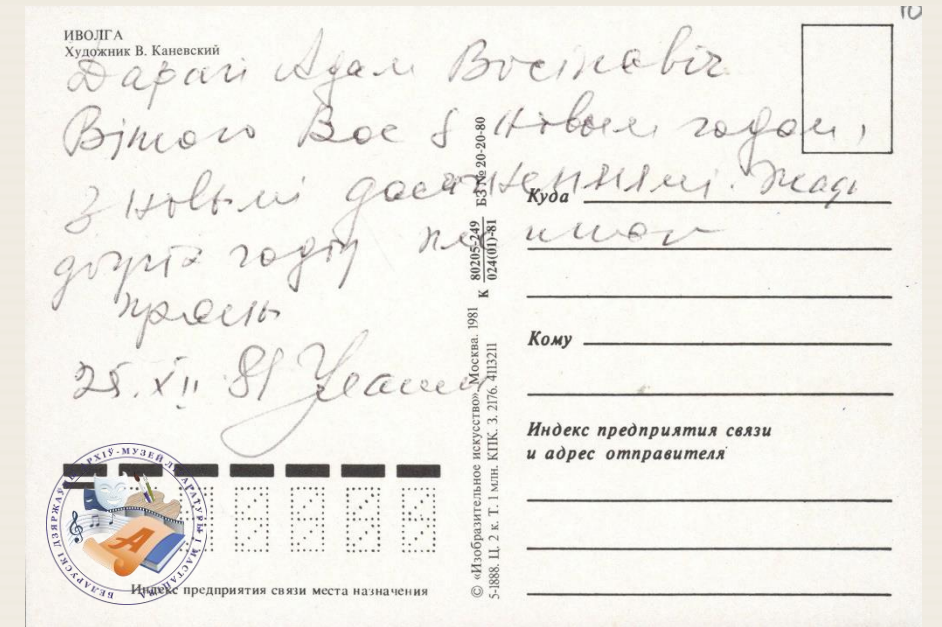 ИВОЛГА
Художник В. Каневский
Дарагі Адам Восіпавіч
Вітаю Вас з новым годам,
з новымі дасягненнямі.
годзе
25.XII 81
К 80205-249 БЗ № 20-20-80
024(01)-81
© «Изобразительное искусство». Москва. 1981
5-1888. Ц. 2 к. Т. 1 млн. КПК. З. 2176. 4113211
Куда
Кому
Индекс предприятия связи
и адрес отправителя
Индекс предприятия связи места назначения
БЕЛАРУСКІ ДЗЯРЖАЎНЫ АРХІЎ-МУЗЕЙ ЛІТАРАТУРЫ І МАСТАЦТВА
А
10